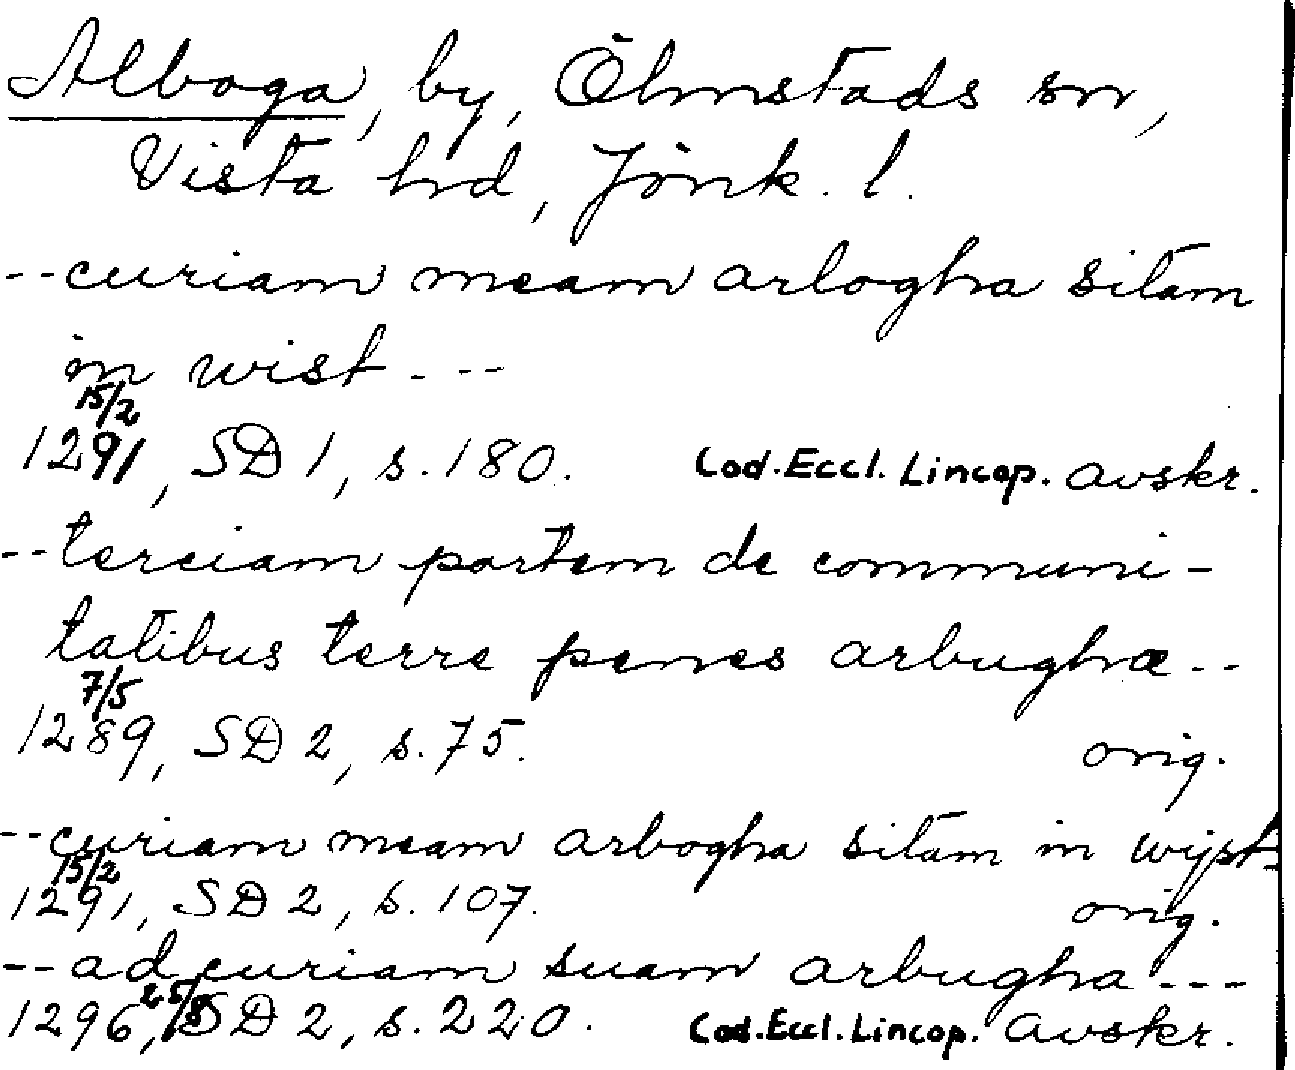 Alboga, by, Ölmstads sn,
Vista hd, Jönk. l.
--curiam meam arlogha sitam
in wist ---
15/2
1291, SD 1, s. 180. Cod. Eccl. Lincop. avskr.
--terciam partem de communi-
tatibus terre penes arbughæ--
7/5
1289, SD 2, s. 75. orig.
--curiam meam arbogha sitam in wijst-
15/2
1291, SD 2, s. 107. orig.
--ad curiam suam arbugha---
1296, SD 2, s. 220. Cod. Eccl. Lincop. avskr.